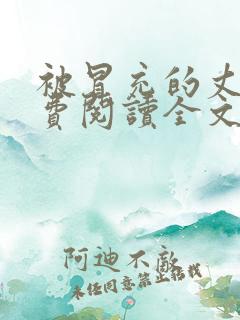 被冒充的丈
費閱讀全文
阿迪不敵
未經同意禁止轉載